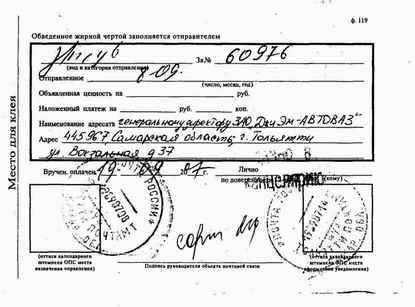 ф. 119
Обведенное жирной чертой заполняется отправителем
За № 60976
(вид и категория отправления)
Отправленное 8.09.
(число, месяц, год)
Объявленная ценность на руб. коп.
Наложенный платеж на руб. коп.
Наименование адресата генеральному директору ЗАО „Джи Эм-АВТОВАЗ"
Адрес 445967, Самарская область, г. Тольятти
ул. Вокзальная д 37
Вручен. оплачен 19 09 Лично
по довер (кому)
Место для клея
РОССИИ
ПОЧТАМТ
ПОЧТА РОССИИ
(оттиск календарного
штемпеля ОПС места
назначения отправления)
Подпись руководителя объекта почтовой связи
(оттиск календарного
штемпеля ОПС места
уведомления)